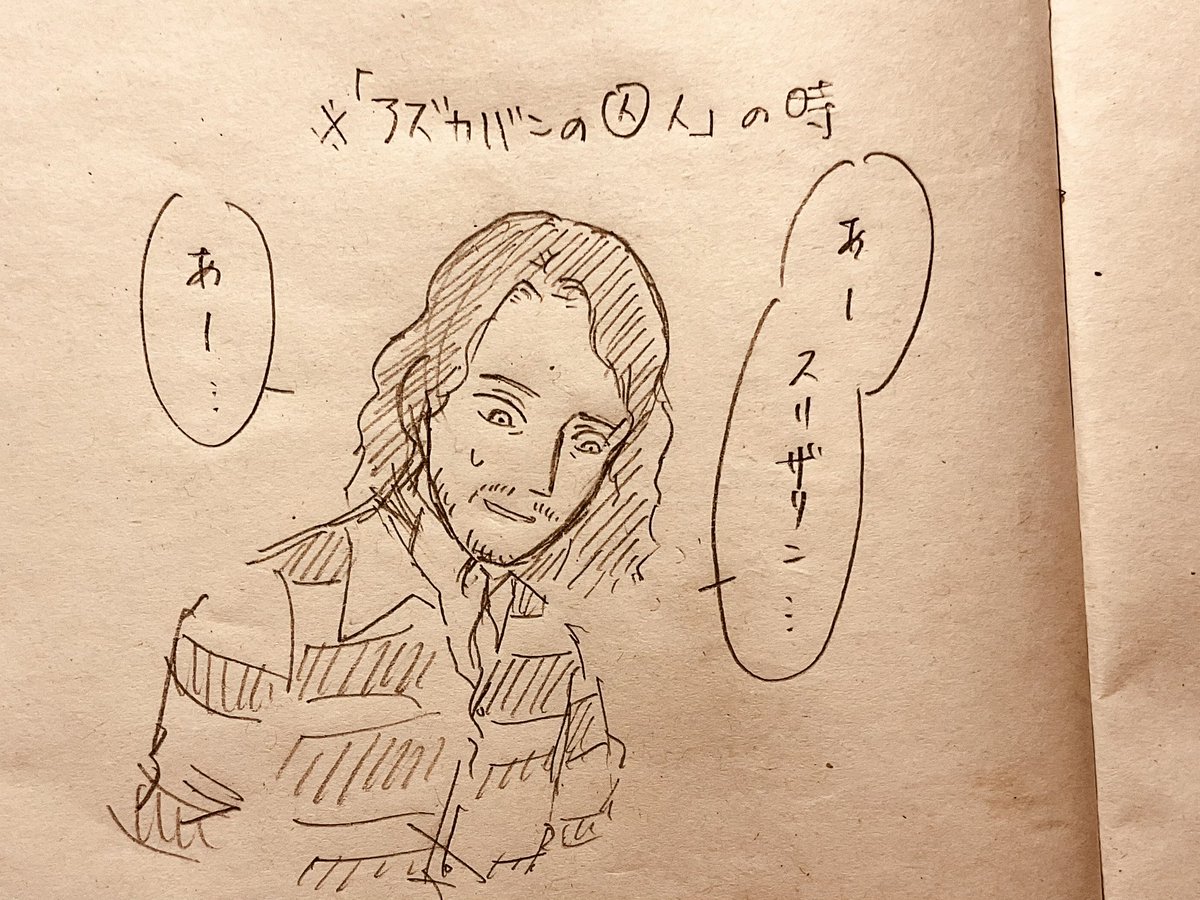 ※「アズカバンの囚人」の時
あー
スリザリン…
あー…